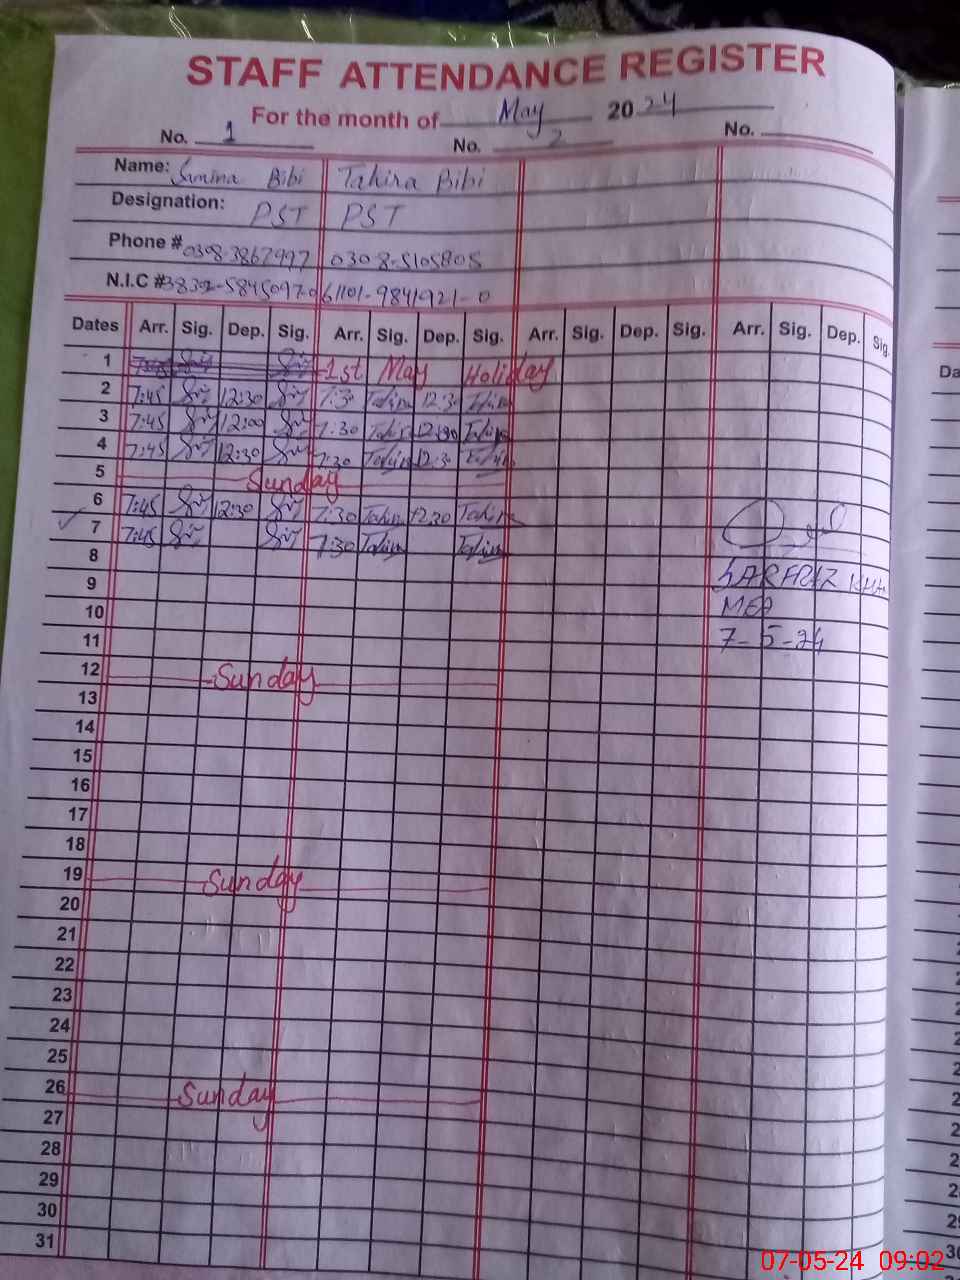 STAFF ATTENDANCE REGISTER
For the month of May 2024
No. 1 No. 2 No.
Name: Samina Bibi Tahira Bibi
Designation: PST PST
Phone # 0308-3867997 0308-5105805
N.I.C # 61101-9841921-0
Dates Arr. Sig. Dep. Sig. Arr. Sig. Dep. Sig. Arr. Sig. Dep. Sig. Arr. Sig. Dep. Sig.
1 1st May Holiday
2 7:45 12:30 7:30 Tahira 12:30 Tahira
3 7:45 12:00 7:30 Tahira Tahira
4 7:45 12:30 7:30 Tahira 12:30 Tahira
5 Sunday
6 7:45 12:30 7:30 Tahira 12:30 Tahira
7 7:45 7:30 Tahira Tahira
8
9 SARFRAZ KHAN
10 MEA
11 7-5-24
12 Sunday
13
14
15
16
17
18
19 Sunday
20
21
22
23
24
25
26 Sunday
27
28
29
30
31
07-05-24 09:02